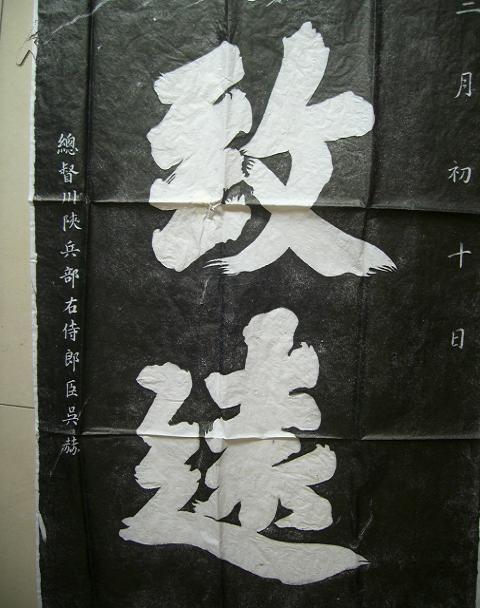 月初十日
致遠
總督川陝兵部右侍郎臣吳赫